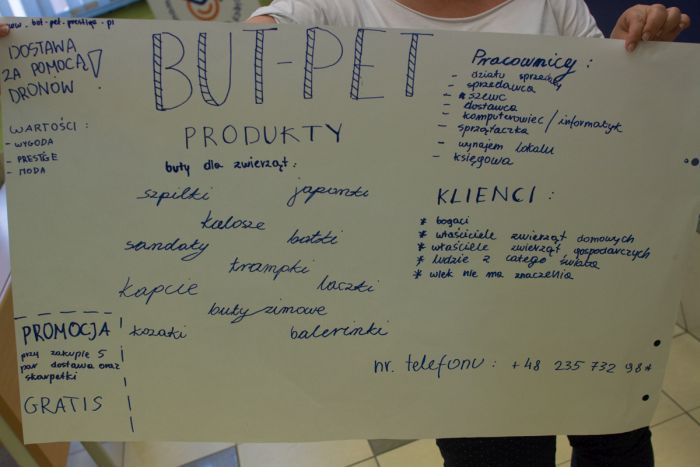 www.but-pet.prestige.pl
DOSTAWA
ZA POMOCĄ
DRONÓW !
BUT-PET
WARTOŚCI :
- WYGODA
- PRESTIGE
- MODA
PRODUKTY
buty dla zwierząt :
szpilki japonki
kalosze
sandały botki
trampki
kapcie laczki
buty zimowe
kozaki balerinki
PROMOCJA
przy zakupie 5
par dostawa oraz
skarpetki
GRATIS
Pracownicy :
- działu sprzedaży
- sprzedawca
- szewc
- dostawca
- komputerowiec / informatyk
- sprzątaczka
- wynajem lokalu
- księgowa
KLIENCI :
* bogaci
* właściciele zwierząt domowych
* właściele zwierząt gospodarczych
* ludzie z całego świata
* wiek nie ma znaczenia
nr. telefonu : +48 235 732 98*